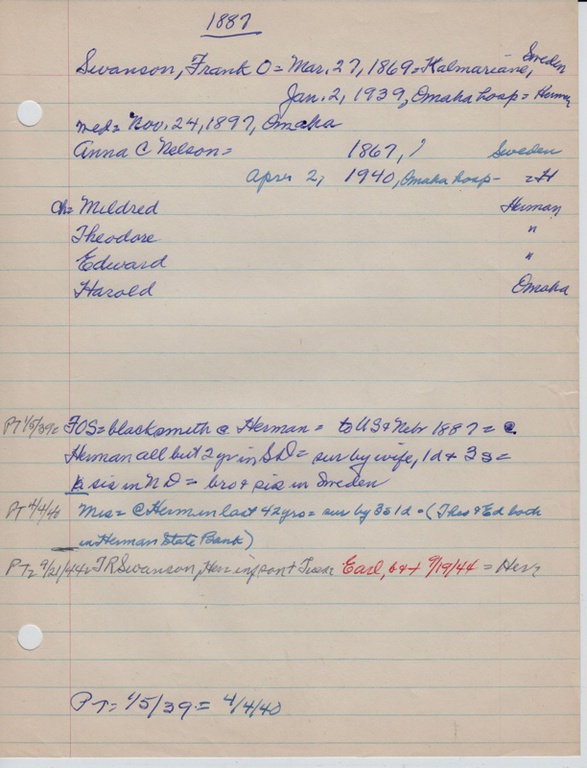 1887
Swanson, Frank O = Mar. 27, 1869 = Kalmariane, Sweden
Jan. 2, 1939, Omaha hosp = Herman
med = Nov. 24, 1897, Omaha
Anna C Nelson = 1867, ? Sweden
Apr 2, 1940, Omaha hosp - = H
Ch = Mildred Herman
Theodore "
Edward "
Harold Omaha
PT 1/5/39 = FOS = blacksmith @ Herman = to US & Nebr 1887 = @
Herman all but 2 yr in SD = sur by wife, 1d + 3s =
sis in ND = bro & sis in Sweden
PT 4/4/40 Mrs = @ Herm in last 42 yrs = sur by 3s 1d = (Theo & Ed both
in Herman State Bank)
PT = 9/21/44 = TR Swanson, Her = inf son + Earl, b & + 9/19/44 = Her
PT = 1/5/39 = 4/4/40